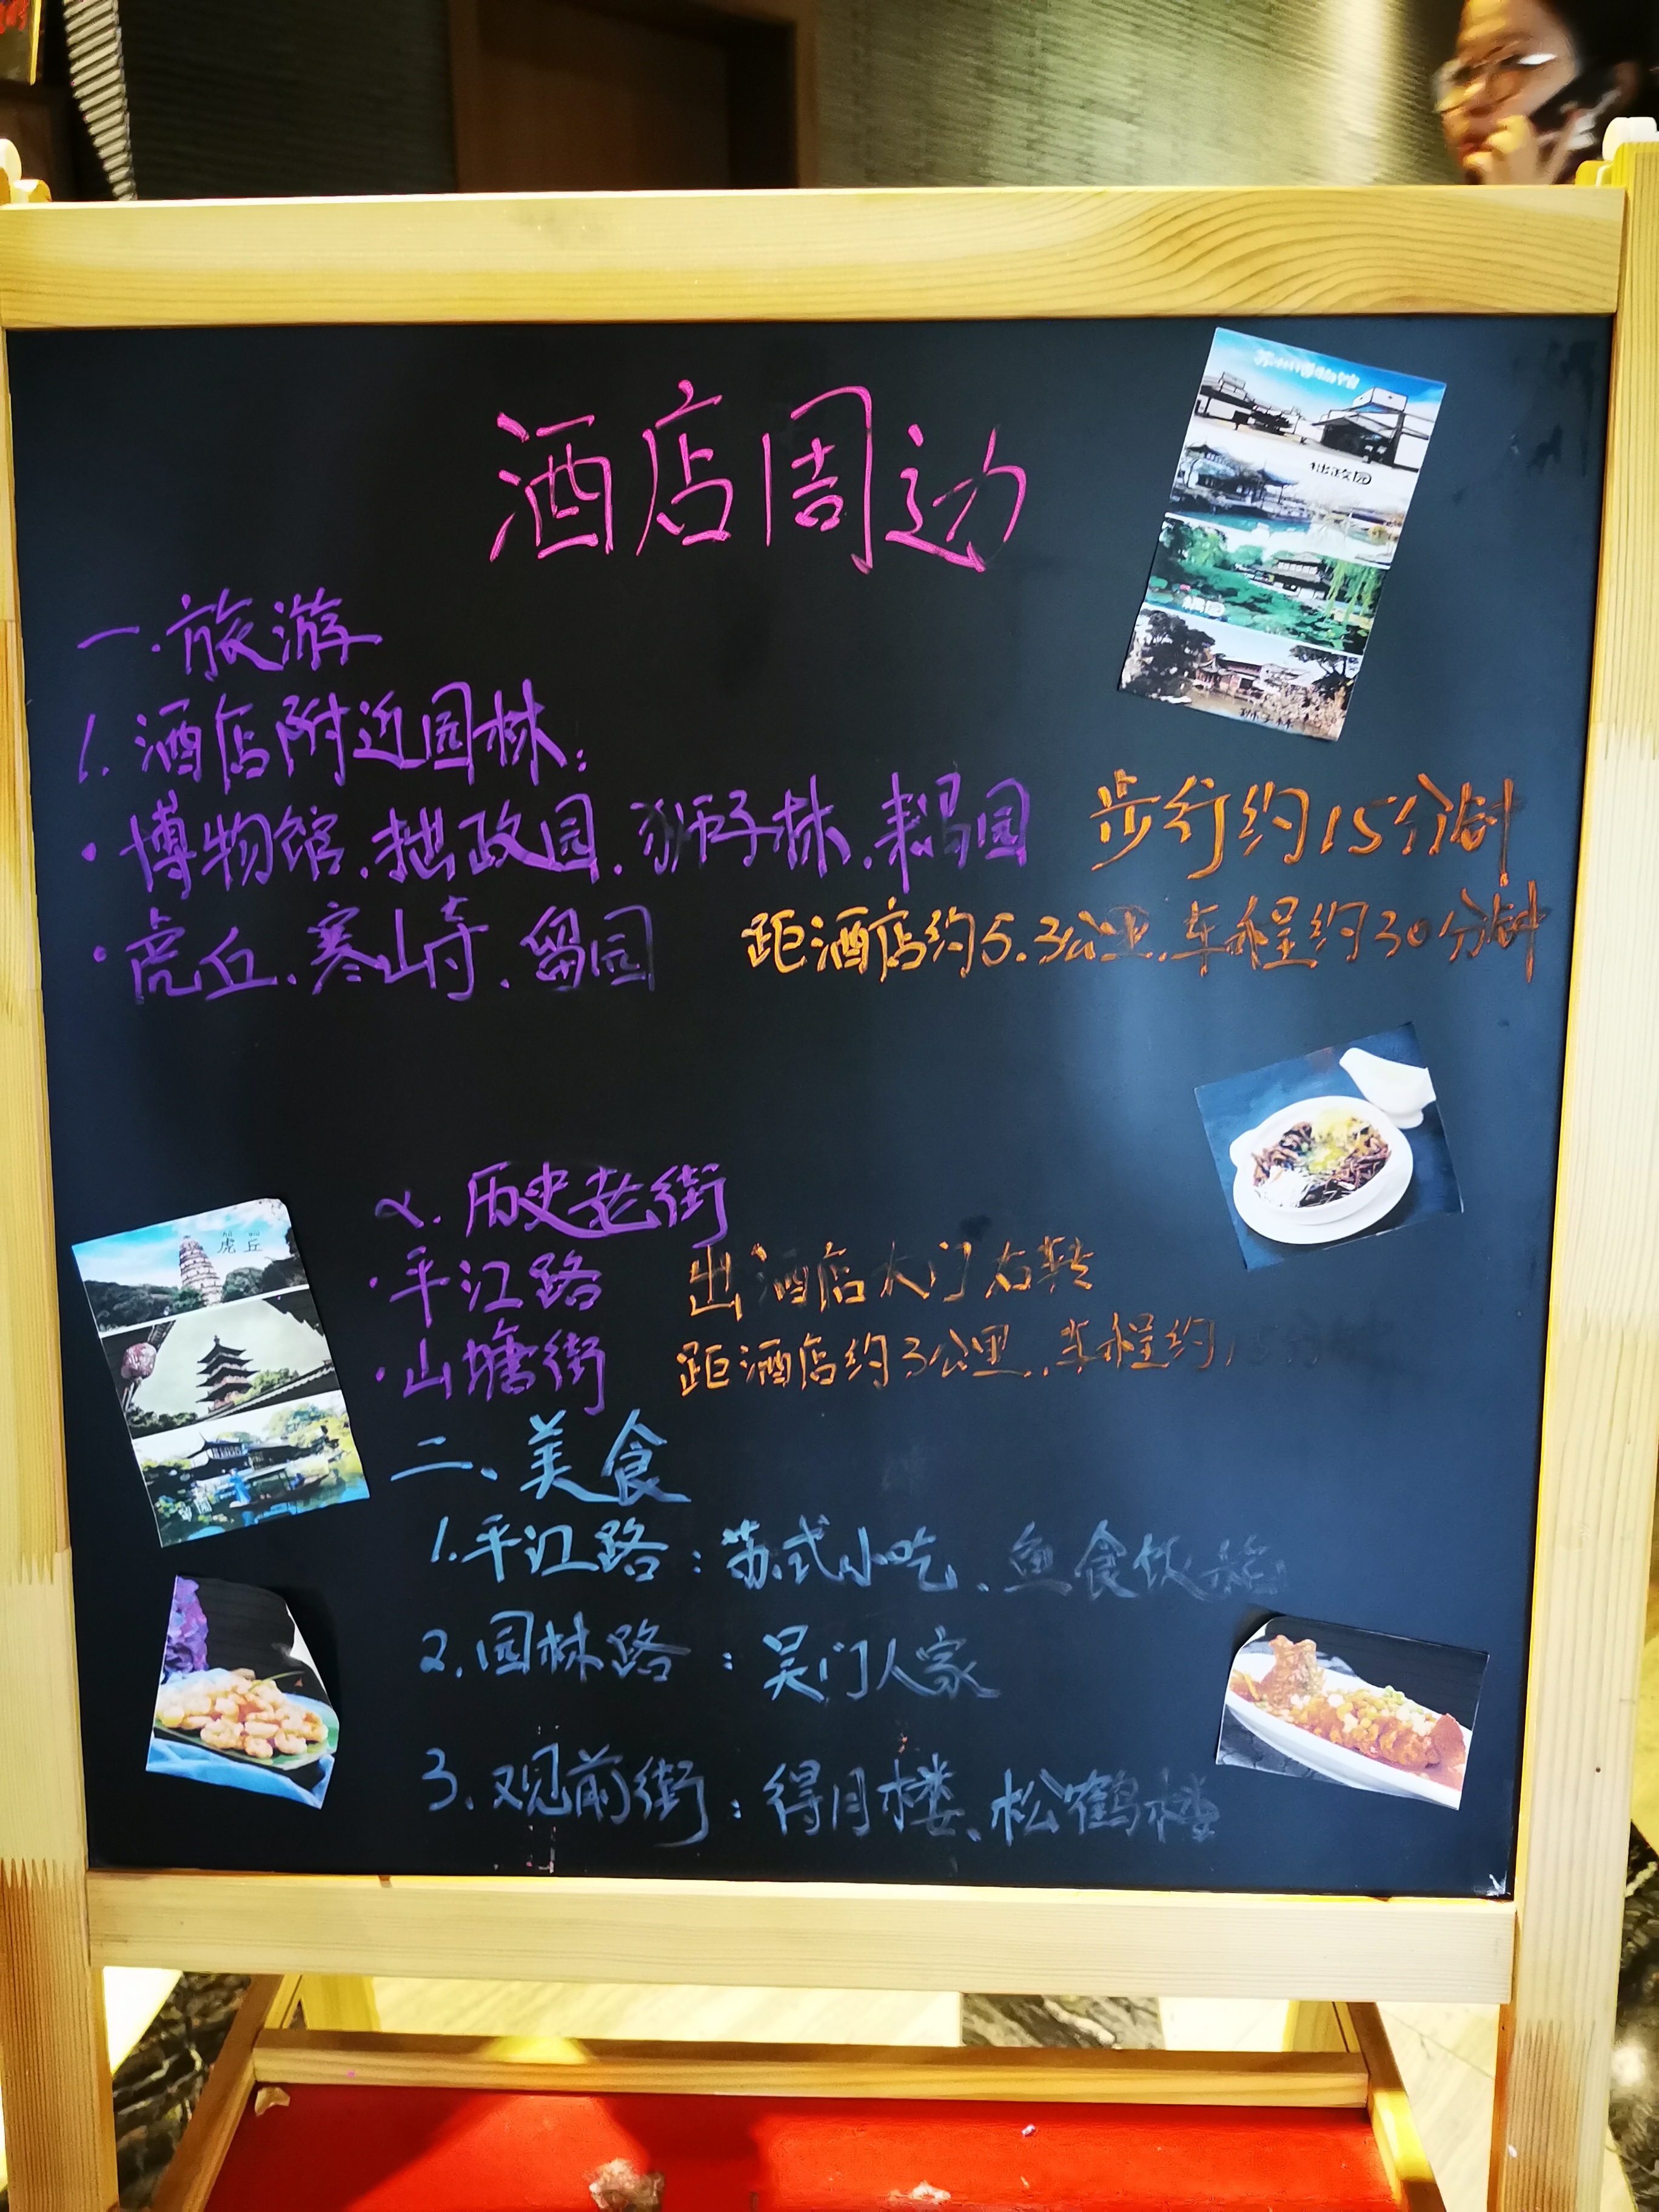 酒店周边
苏州博物馆
拙政园
耦园
狮子林
一.旅游
1.酒店附近园林:
·博物馆.拙政园.狮子林.耦园 步行约15分钟
·虎丘、寒山寺.留园 距酒店约5.3公里.车程约30分钟
2.历史老街
·平江路 出酒店大门右转
·山塘街 距酒店约3公里.车程约 分钟
虎丘
二、美食
1.平江路:苏式小吃、鱼食饭稻
2.园林路:吴门人家
3.观前街:得月楼、松鹤楼